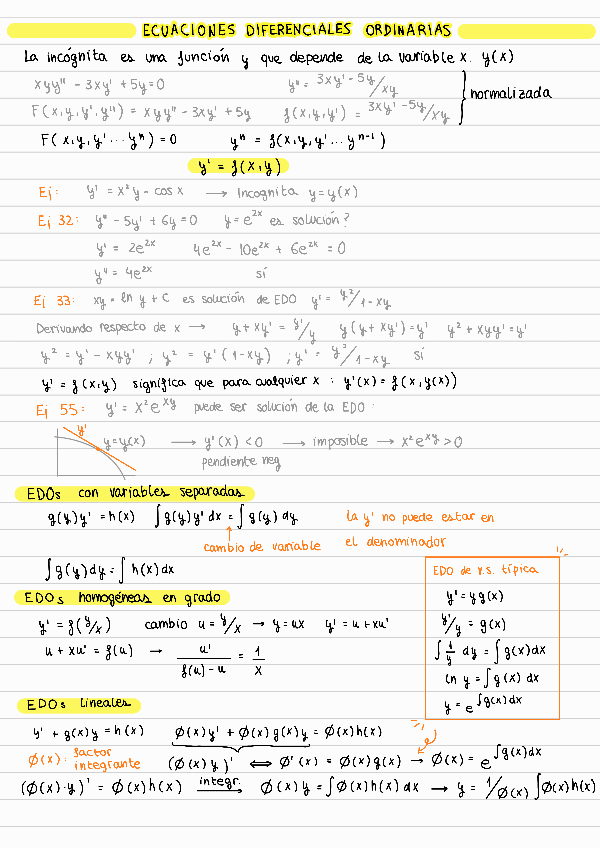 ECUACIONES DIFERENCIALES ORDINARIAS
La incógnita es una función y que depende de la variable x. y(x)
xyy" - 3xy' + 5y = 0 y" = 3xy' - 5y/xy
F(x,y,y',y") = xyy" - 3xy' + 5y f(x,y,y') = 3xy' - 5y/xy normalizada
F(x,y,y'...yⁿ) = 0 yⁿ = f(x,y,y'...yⁿ⁻¹)
y' = f(x,y)
Ej: y' = x²y - cos x → Incognita y = y(x)
Ej 32: y" - 5y' + 6y = 0 y = e²ˣ es solución?
y' = 2e²ˣ 4e²ˣ - 10e²ˣ + 6e²ˣ = 0
y" = 4e²ˣ sí
Ej 33: xy = ln y + c es solución de EDO y' = y²/1-xy
Derivando respecto de x → y + xy' = y'/y y(y + xy') = y' y² + xyy' = y'
y² = y' - xyy' ; y² = y'(1-xy) ; y' = y²/1-xy sí
y' = f(x,y) significa que para cualquier x : y'(x) = f(x,y(x))
Ej 55: y' = x²e^xy puede ser solución de la EDO :
y'
y = y(x) → y'(x) < 0 → imposible → x²e^xy > 0
pendiente neg
EDOs con variables separadas
g(y)y' = h(x) ∫g(y)y' dx = ∫g(y) dy la y' no puede estar en
cambio de variable el denominador
∫g(y)dy = ∫h(x)dx
EDO de v.s. típica
EDOs homogéneas en grado
y' = y g(x)
y' = f(y/x) cambio u = y/x → y = ux y' = u + xu'
y'/y = g(x)
u + xu' = f(u) → u'/f(u) - u = 1/x
∫1/y dy = ∫g(x)dx
ln y = ∫g(x) dx
y = e^∫g(x)dx
EDOs lineales
y' + g(x)y = h(x) Ø(x)y' + Ø(x)g(x)y = Ø(x)h(x)
Ø(x): factor integrante (Ø(x)y)' ⟺ Ø'(x) = Ø(x)g(x) → Ø(x) = e^∫g(x)dx
(Ø(x)·y)' = Ø(x)h(x) integr. → Ø(x)y = ∫Ø(x)h(x)dx → y = 1/Ø(x) ∫Ø(x)h(x)